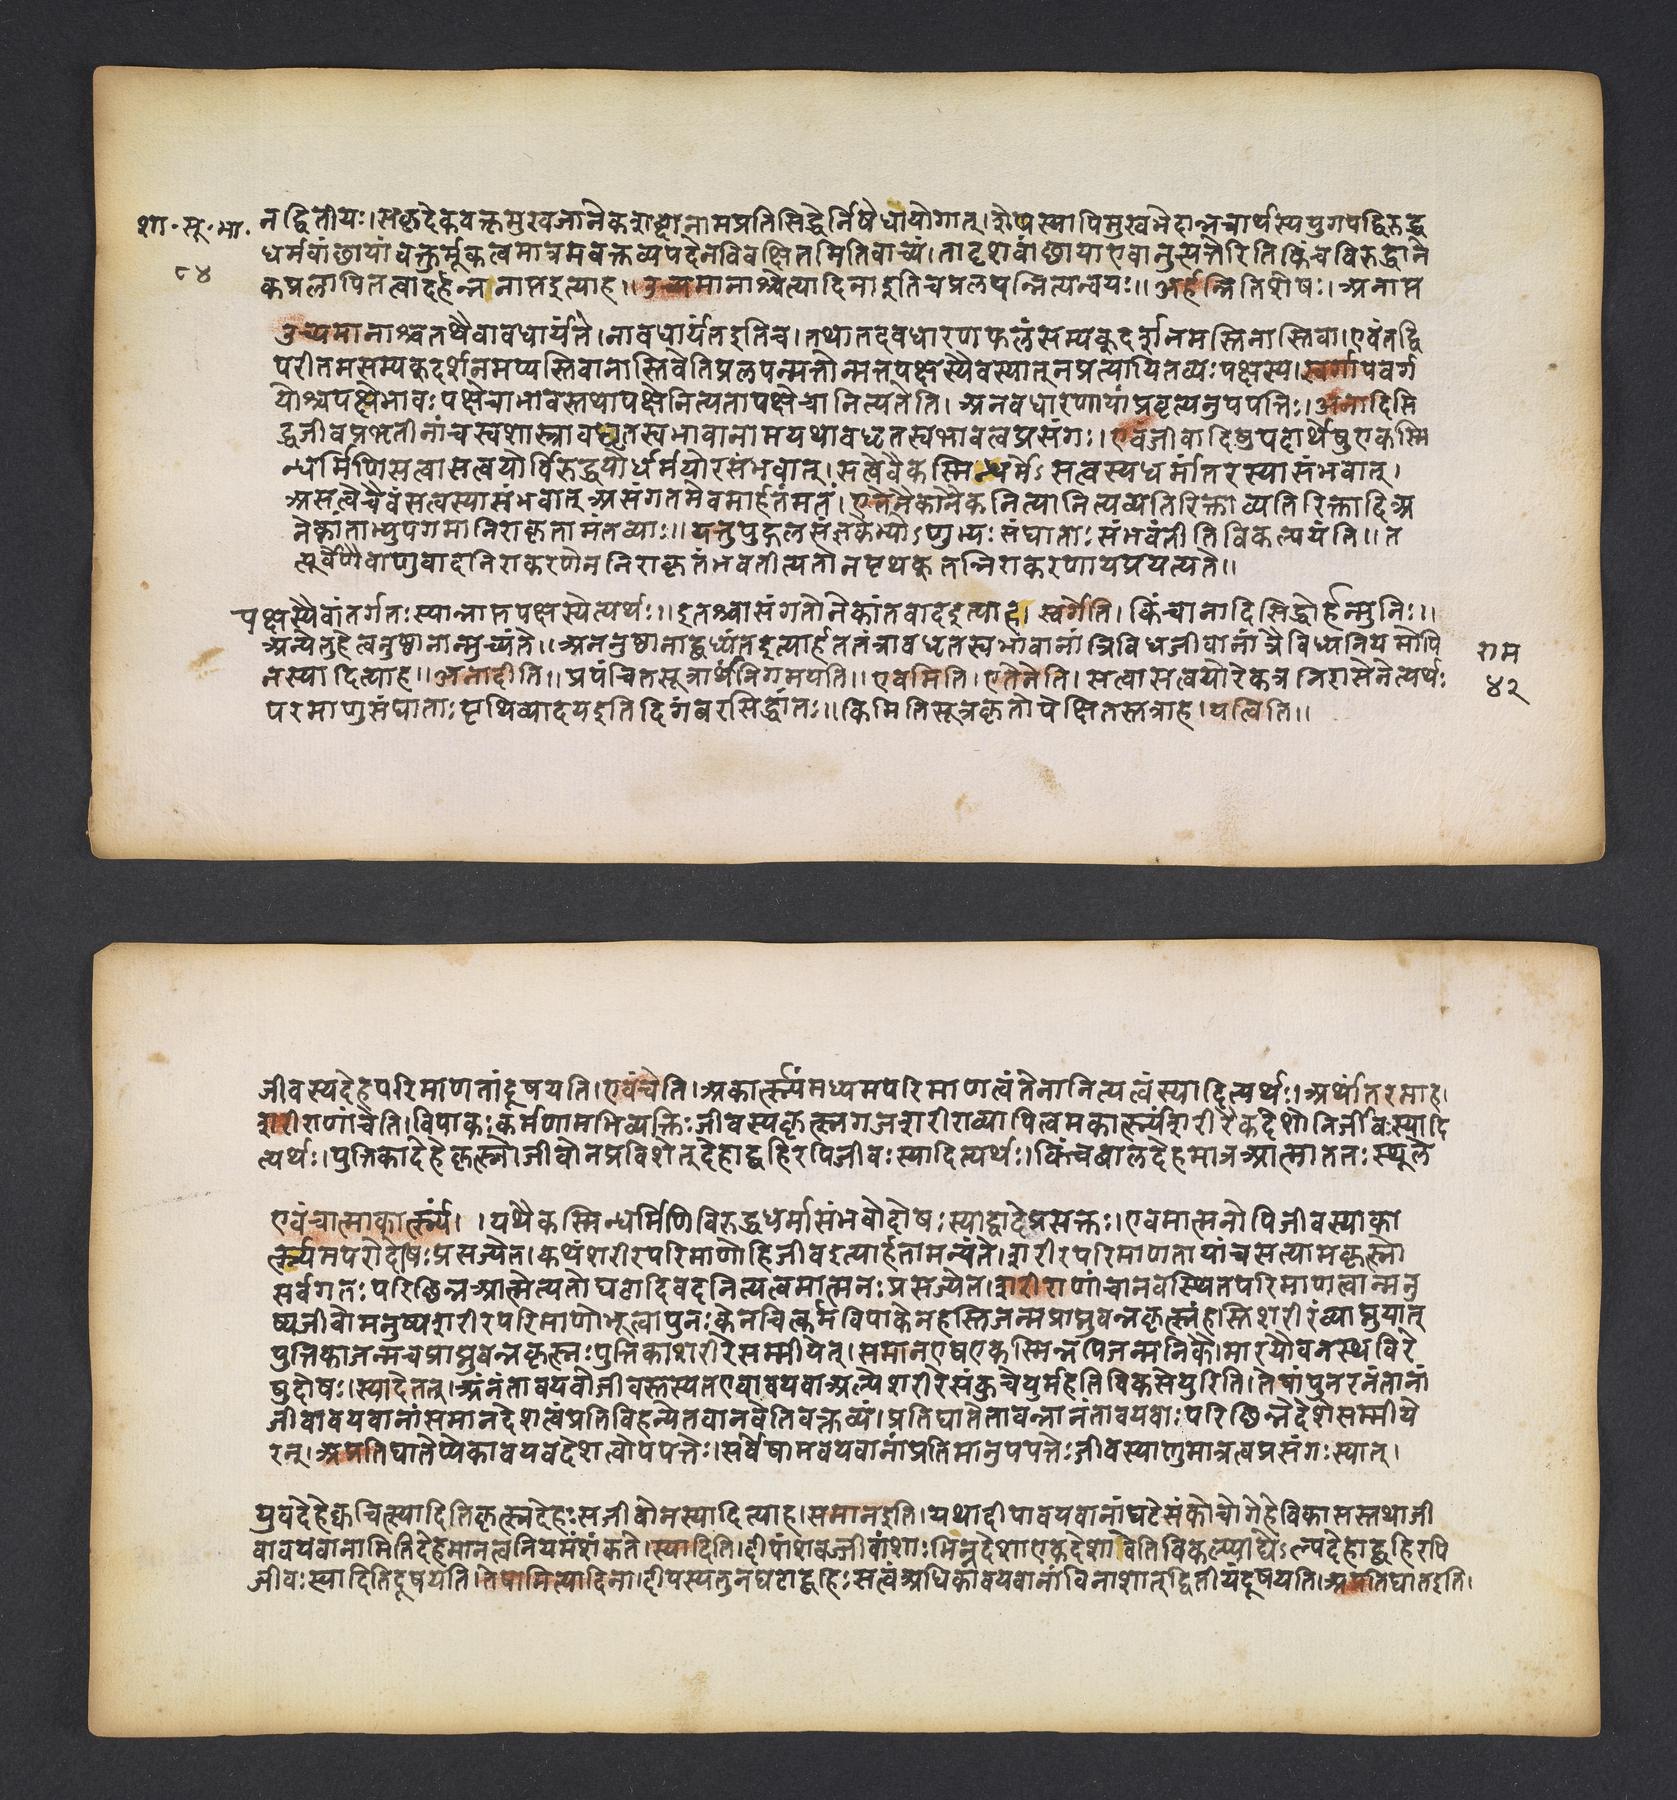 शा. सू. भा.
८४
न द्वितीयः। सकृदेकवक्तृमुखजानेकशब्दानामप्रतिसिद्धेर्निषेधायोगात्। शेषस्यापिमुखभेदान्नचार्थस्ययुगपद्विरुद्ध
धर्मवांछायां वक्तुर्मूकत्वमात्रमवक्तव्यपदेनविवक्षितमितिवाच्यं। तादृशवांछायाएवानुत्पत्तेरिति किंचविरुद्धाने
कप्रलापितत्वादर्हन्नानाप्तइत्याह॥ उच्यमानाश्चेत्यादिनाइतिचप्रलपन्नित्यन्वयः॥ अर्हन्नितिशेषः। अनाप्त
उच्यमानाश्चतथैवावधार्यंते। नावधार्यंतइतिच। तथातदवधारणफलंसम्यक्दर्शनमस्तिनास्तिवा। एवंतद्वि
परीतमसम्यक्दर्शनमप्यस्तिवानास्तिवेतिप्रलपन्मत्तोन्मत्तपक्षस्यैवस्यात्नप्रत्यायितव्यःपक्षस्य। स्वर्गापवर्ग
योश्चपक्षेभावः पक्षेचाभावस्तथापक्षेनित्यतापक्षेचानित्यतेति। अनवधारणायांप्रवृत्त्यनुपपत्तिः। अनादिसि
द्धजीवप्रभृतीनांचस्वशास्त्रावधृतस्वभावानामयथावधृतस्वभावत्वप्रसंगः। एवंजीवादिषुपदार्थेषुएकस्मि
न्धर्मिणिसत्वासत्वयोर्विरुद्धयोर्धर्मयोरसंभवात्। सत्वेचैकस्मिन्धर्मेऽसत्वस्यधर्मांतरस्यासंभवात्।
असत्वेचैवंसत्वस्यासंभवात् असंगतमेवमार्हतंमतं। एतेनैकानेकनित्यानित्यव्यतिरिक्ताव्यतिरिक्तादिअ
नेकांताभ्युपगमानिराकृतामंतव्याः॥ यत्तुपुद्गलसंज्ञकेभ्योऽणुभ्यःसंघाताःसंभवंतीतिविकल्पयंति॥ त
त्पूर्वेणैवाणुवादनिराकरणेननिराकृतंभवतीत्यतोनपृथक्तन्निराकरणायप्रयत्यते॥
पक्षस्यैवांतर्गतःस्यान्नाप्तपक्षस्येत्यर्थः॥ इतश्चासंगतोनेकांतवादइत्याह। स्वर्गेति। किंचानादिसिद्धोर्हन्मुनिः॥
अन्येतुहेत्वनुष्ठानान्मुच्यंते॥ अननुष्ठानाद्बध्यंतइत्यार्हततंत्रावधृतस्वभावानांत्रिविधजीवानांत्रैविध्यनियमोपि
नस्यादित्याह॥ अनादीति॥ प्रपंचितसूत्रार्थंनिगमयति॥ एवमिति। एतेनेति। सत्वासत्वयोरेकत्रनिरासेनेत्यर्थः
परमाणुसंघाताःपृथिव्यादयइतिदिगंबरसिद्धांतः॥ किमितिसूत्रकृतोपेक्षितस्तत्राह। यत्विति॥
राम
४२
जीवस्यदेहपरिमाणतांदूषयति। एवंचेति। अकार्त्स्न्यंमध्यमपरिमाणत्वंतेनानित्यत्वंस्यादित्यर्थः। अर्थांतरमाह।
शरीराणांचेति। विपाकःकर्मणामभिव्यक्तिःजीवस्यकृत्स्नगजशरीराव्यापित्वमकार्त्स्न्यंशरीरैकदेशोनिर्जीवःस्यादि
त्यर्थः। पुत्तिकादेहेकृत्स्नोजीवोनप्रविशेत्देहाद्बहिरपिजीवःस्यादित्यर्थः। किंचबालदेहमात्रआत्माततःस्थूले
एवंचात्माकार्त्स्न्यं। । यथैकस्मिन्धर्मिणिविरुद्धधर्मासंभवोदोषःस्याद्वादेप्रसक्तः। एवमात्मनोपिजीवस्याका
र्त्स्न्यमपरोदोषःप्रसज्येत। कथंशरीरपरिमाणोहिजीवइत्यार्हतामन्यंते। शरीरपरिमाणतायांचसत्यामकृत्स्नो
सर्वगतःपरिछिन्नआत्मेत्यतोघटादिवदनित्यत्वमात्मनःप्रसज्येत। शरीराणांचानवस्थितपरिमाणत्वान्मनु
ष्यजीवोमनुष्यशरीरपरिमाणोभूत्वापुनःकेनचित्कर्मविपाकेनहस्तिजन्मप्राप्नुवन्नकृत्स्नंहस्तिशरीरंव्याप्नुयात्
पुत्तिकाजन्मचप्राप्नुवन्नकृत्स्नःपुत्तिकाशरीरेसम्मीयेत्। समानएषएकस्मिन्नपिजन्मनिकौमारयौवनस्थविरे
षुदोषः। स्यादेतत्। अनंतावयवोजीवस्तस्यतएवावयवाअल्पेशरीरेसंकुचेयुर्महतिविकसेयुरिति। तेषांपुनरनंतानां
जीवावयवानांसमानदेशत्वंप्रतिविहन्येतवानवेतिवक्तव्यं। प्रतिघातेतावन्नानंतावयवाःपरिछिन्नेदेशेसम्मीये
रन्। अप्रतिघातेप्येकावयवदेशत्वोपपत्तेः। सर्वेषामवयवानांप्रतिमानुपपत्तेःजीवस्याणुमात्रत्वप्रसंगःस्यात्।
युवदेहेक्वचित्स्यादितिकृत्स्नदेहःसजीवोनस्यादित्याह। समानइति। यथादीपावयवानांघटेसंकोचोगेहेविकासस्तथाजी
वावयवानामितिदेहमानत्वनियमंशंकते। स्यादिति। दीपांशवज्जीवांशाःभिन्नदेशाएकदेशावेतिविकल्प्याद्येऽल्पदेहाद्बहिरपि
जीवःस्यादितिदूषयति। तेषामित्यादिना। दीपस्यतुनघटाद्बहिःसत्वंअधिकावयवानांविनाशात्द्वितीयंदूषयति। अप्रतिघातइति।